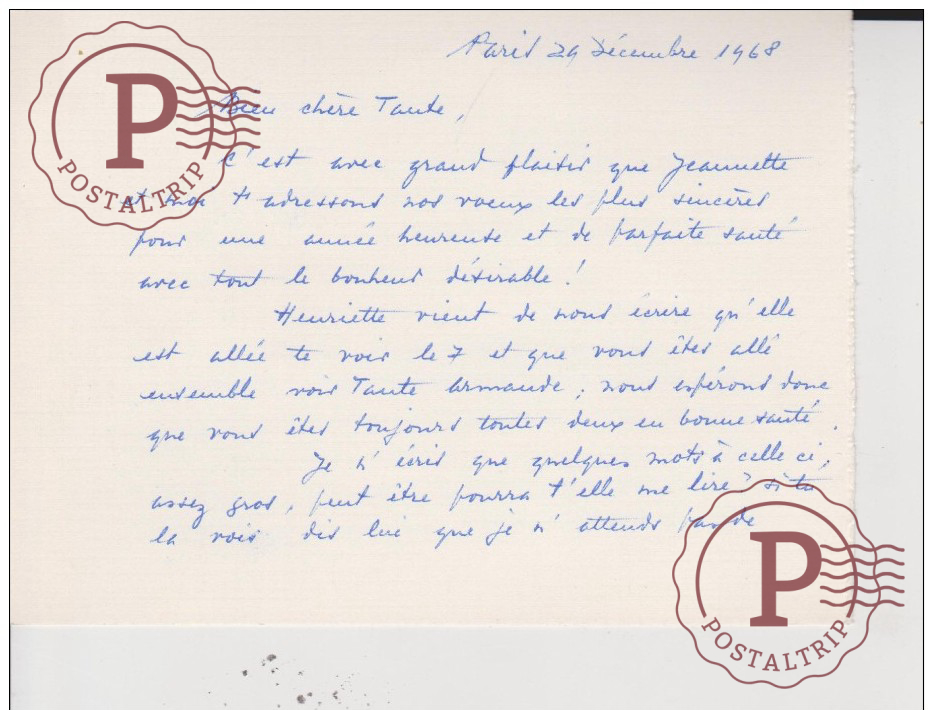 Paris 29 Décembre 1968
Bien chère Tante,
C'est avec grand plaisir que Jeannette
et moi t'adressons nos voeux les plus sincères
pour une année heureuse et de parfaite santé
avec tout le bonheur désirable !
Henriette vient de nous écrire qu'elle
est allée te voir le 7 et que vous êtes allé
ensemble voir Tante Armande ; nous espérons donc
que vous êtes toujours toutes deux en bonne santé.
Je n'écris que quelques mots à celle ci,
assez gros, peut être pourra t'elle me lire ? si tu
la vois dis lui que je n'attends pas de
P
POSTALTRIP
P
POSTALTRIP